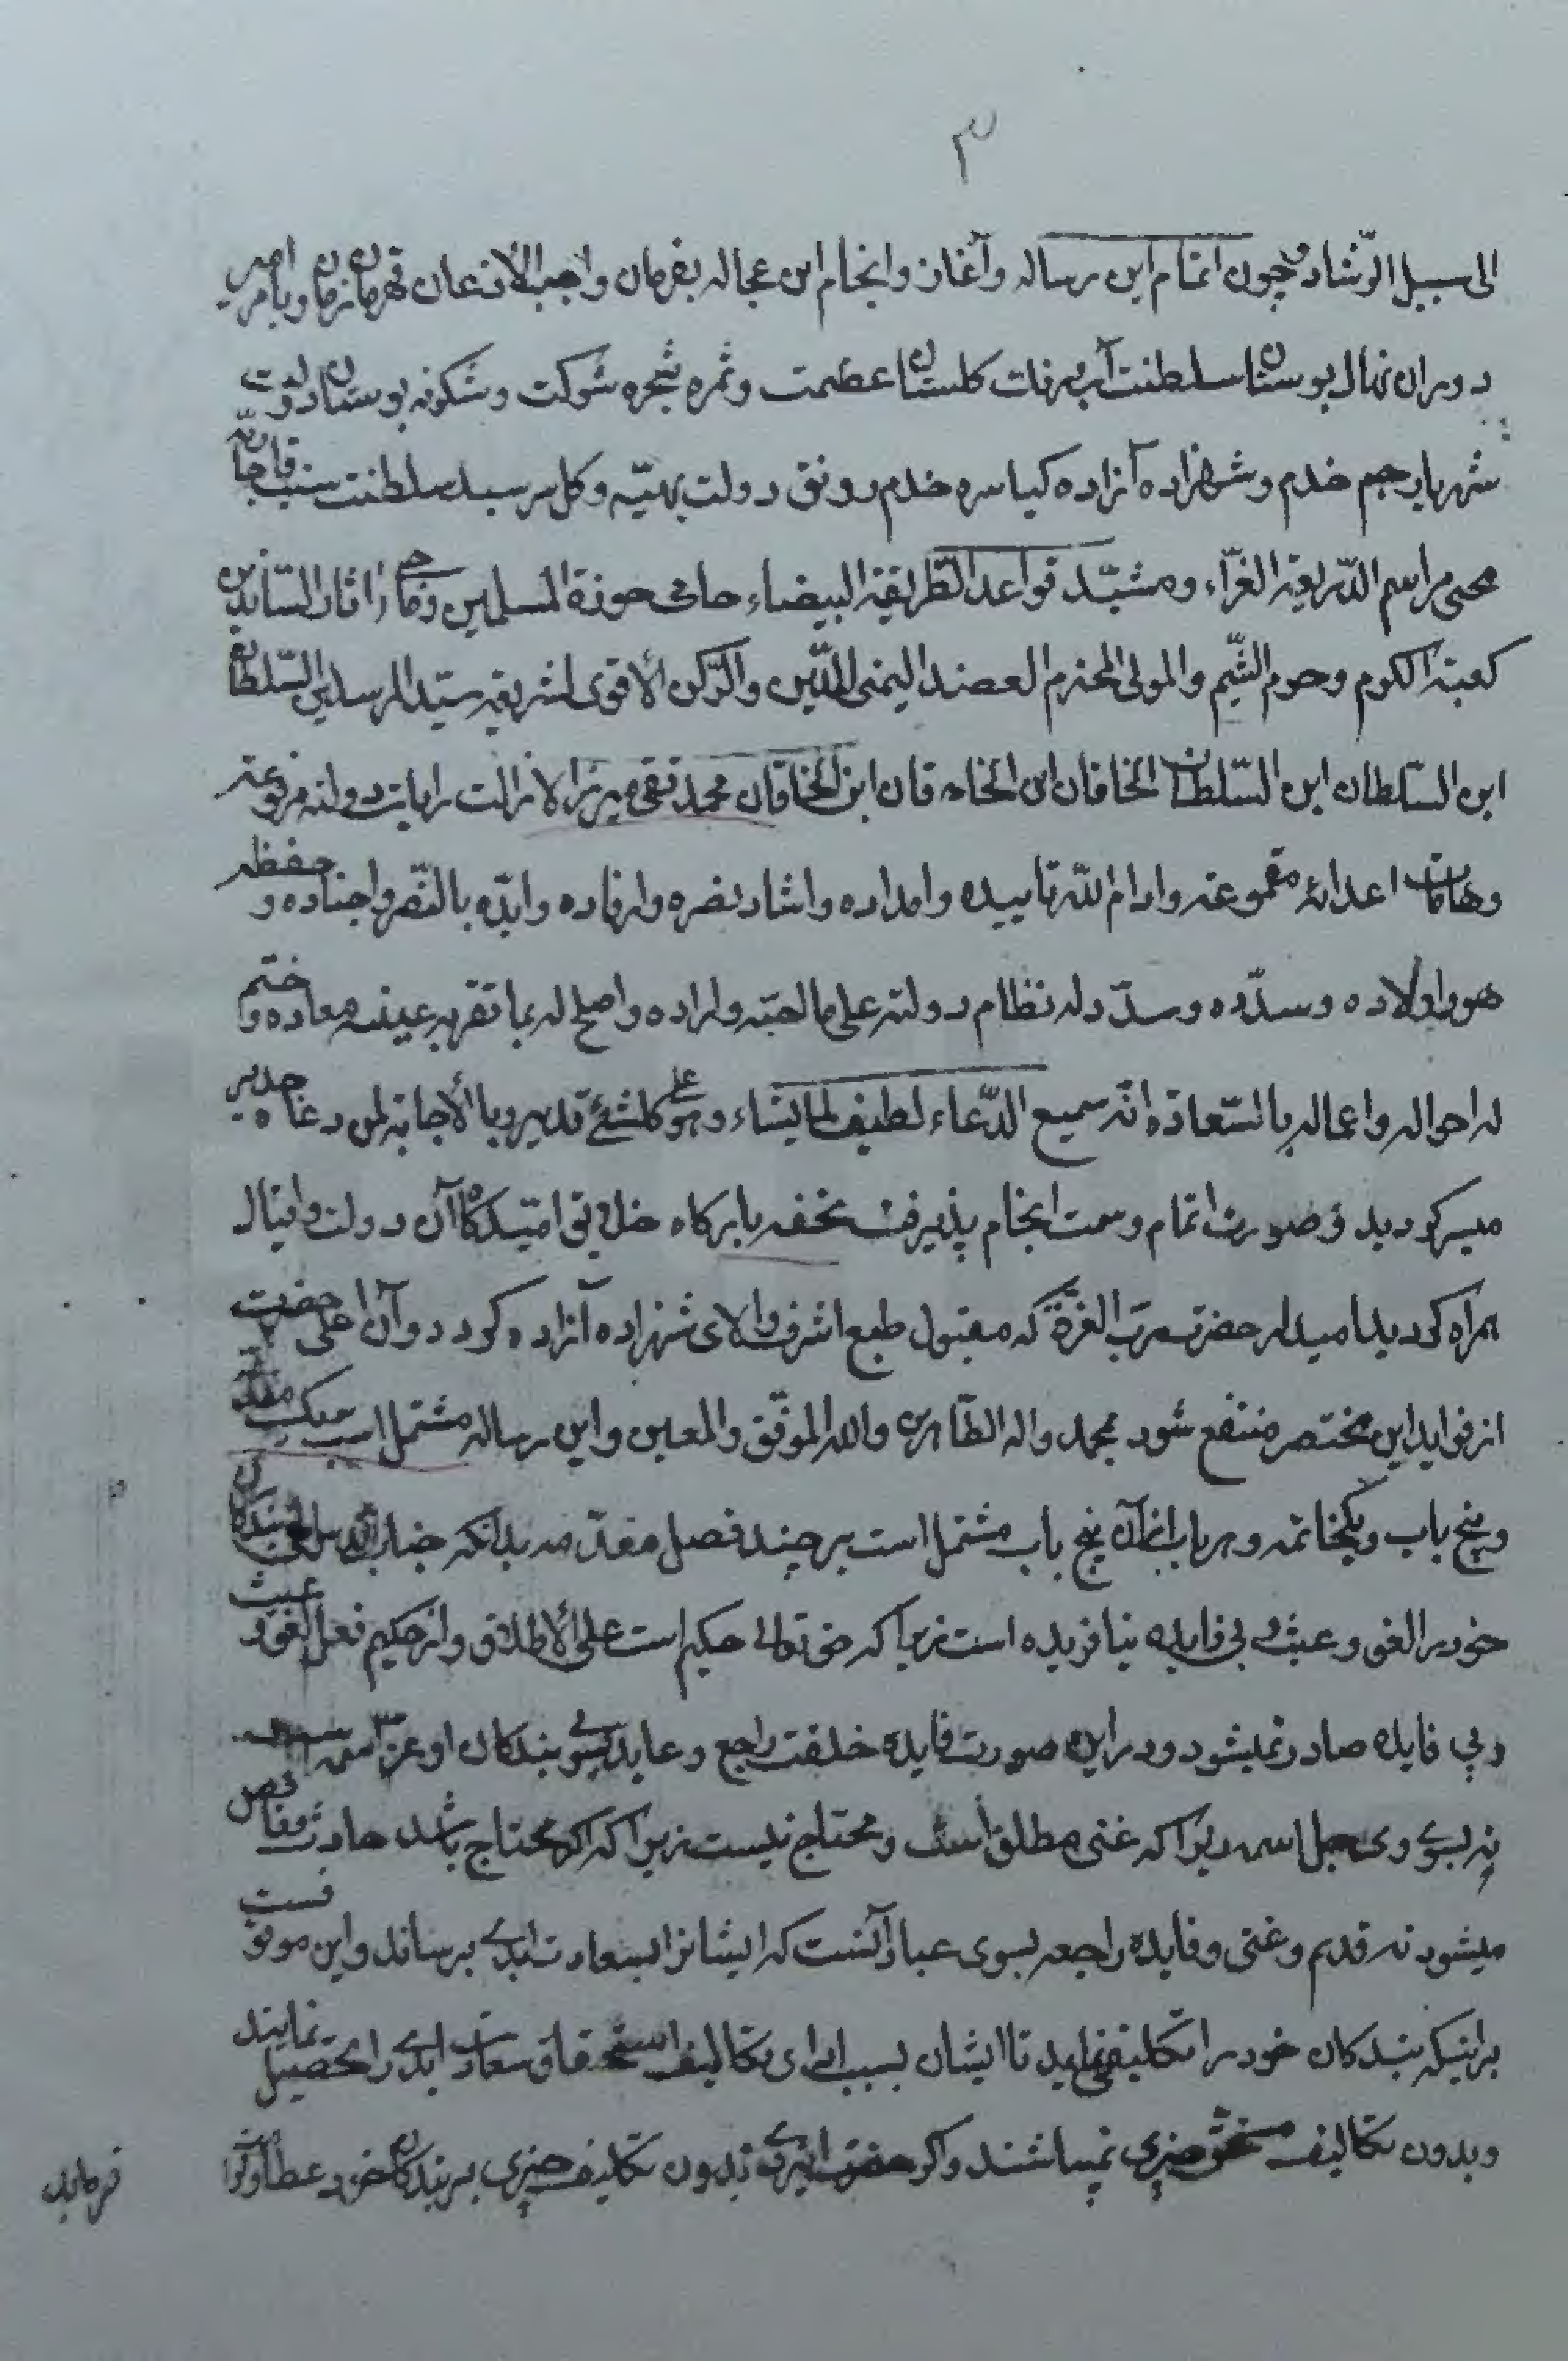 ۳
الی سبیل الرّشاد و چون اتمام این رساله و آغاز و انجام این عجاله بفرمان واجب الاذعان قهرمان زمان و بامر امیر
دوران نهال بوستان سلطنت آب نبات کلستان عظمت و ثمره شجره شوکت و شکوفه بوستان دولت
شهریار جم خدم و شهزاده آزاده کیاسره خدم رونق دولت بهیّه و کل سر سبد سلطنت سنیّه قاجاریّه
محیی مراسم الشریعة الغرّاء و مشیّد قواعد الطریقة البیضاء حامی حوزة المسلمین و ماحی آثار
کعبة الکرم و حرم الشّیم و المولی المحترم العضد الیمنی للدّین و الرّکن الأقوی لشریعة سیّد المرسلین السّلطان
ابن السّلطان ابن السّلطان الخاقان ابن الخاقان ابن الخاقان محمد تقی میرزا لا زالت رایات دولته مرفوعة
و هامات اعدائه مقموعة و ادام اللّه تاییده و امداده و اشاد نصره و ارفاده و ایّده بالنّصر و اجناده و حفظه
هو و اولاده و سدّده و سدّد له نظام دولته علی ما احبّه و اراده و اصلح له بما تقر به عینه معاده و ختم
له احواله و اعماله بالسّعادة انّه سمیع الدّعاء لطیف لما یشاء و هو علی کلشئ قدیر و بالأجابة لمن دعاه جدیر
میسر کردید و صورت اتمام و سمت انجام پذیرفت تحفه بارکاه خلایق امیدکاه آن دولت و اقبال
همراه کردید امید از حضرت ربّ العزّة که مقبول طبع اشرف والای شهزاده آزاده کردد و آن اعلی حضرت
از فواید این مختصر منتفع شود بمحمد و اله الطّاهرین واللّه الموفّق و المعین و این رساله مشتمل است بیک مقدّمه
و پنج باب و یکخاتمه و هر باب از آن پنج باب مشتمل است بر چند فصل مقدّمه بدانکه جناب اقدس الهی بندکان
خود را لغو و عبث و بی فایده نیافریده است زیرا که حق تعالی حکیم است علی الأطلاق و از حکیم فعل لغو و عبث
و بی فایده صادر نمیشود و در این صورت فایده خلقت راجع و عاید بسوی بندکان او عزّ اسمه است
نه بسوی وی زیرا که غنی مطلق است و محتاج نیست زیرا که اکر محتاج باشد حادث و ناقص
میشود نه قدیم و غنی و فایده راجعه بسوی عباد آنست که ایشانرا بسعادت ابدی برساند و این موقوفست
بر اینکه بندکان خود را تکلیف نماید تا ایشان بسبب ادای تکالیف استحقاق سعادت ابدی را تحصیل نمایند
و بدون تکالیف مستحق چیزی نمیباشند و اکر حضرت ایزدی بدون تکلیف چیزی ببندکان خود عطا
فرماید